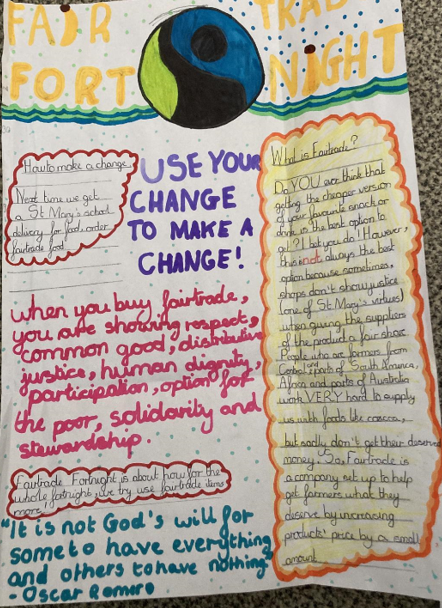 FAIR TRAD
FORT NIGHT
How to make a change
Next time we get
a St Mary's school
delivery for food, order
fairtrade food
USE YOUR
CHANGE
TO MAKE A
CHANGE!
When you buy fairtrade,
you are showing respect,
common good, distributive
justice, human dignity,
participation, option for
the poor, solidarity and
stewardship.
Fairtrade Fortnight is about how for the
whole fortnight, we try use fairtrade items
more.
"It is not God's will for
some to have everything
and others to have nothing"
- Oscar Romiro
What is Fairtrade?
Do YOU ever think that
getting the cheaper version
of your favourite snack or
drink is the best option to
get? I bet you do! However,
this is not always the best
option because sometimes,
shops don't show justice
(one of St Mary's virtues)
when giving the suppliers
of the product a fair share.
People who are farmers from
Central and parts of South America,
Africa and parts of Australia
work VERY hard to supply
us with foods like cocoa,
but sadly don't get their deserved
money. So, Fairtrade is
a company set up to help
get farmers what they
deserve by increasing
products' price by a small
amount